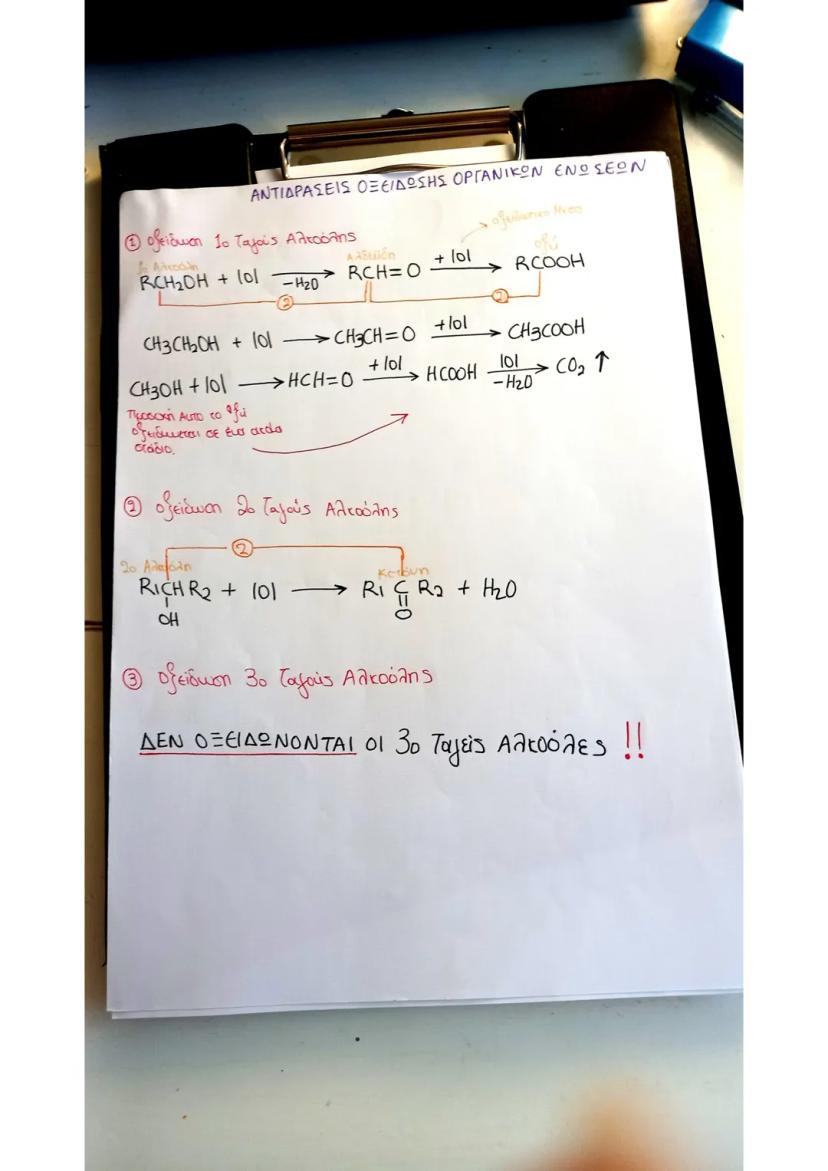 ΑΝΤΙΔΡΑΣΕΙΣ ΟΞΕΙΔΩΣΗΣ ΟΡΓΑΝΙΚΩΝ ΕΝΩΣΕΩΝ
① Οξείδωση 1ο Ταγούς Αλκοόλης
οξειδωτικο Μεσο
1ο Αλκοόλη Αλδεΰδη οξύ
RCH2OH + |O| —−H2O→ RCH=O —+|O|→ RCOOH
② ②
CH3CH2OH + |O| → CH3CH=O —+|O|→ CH3COOH
CH3OH + |O| → HCH=O —+|O|→ HCOOH —|O| −H2O→ CO2 ↑
Προσοχή Αυτο το οξύ
οξειδωνεται σε ένα ακόμα
στάδιο.
② Οξείδωση 2ο Ταγούς Αλκοόλης
②
2ο Αλκοόλη Κετόνη
R1CHR2 + |O| → R1 C R2 + H2O
OH O
③ Οξείδωση 3ο Ταγούς Αλκοόλης
ΔΕΝ ΟΞΕΙΔΩΝΟΝΤΑΙ ΟΙ 3ο Ταγείς Αλκοόλες !!